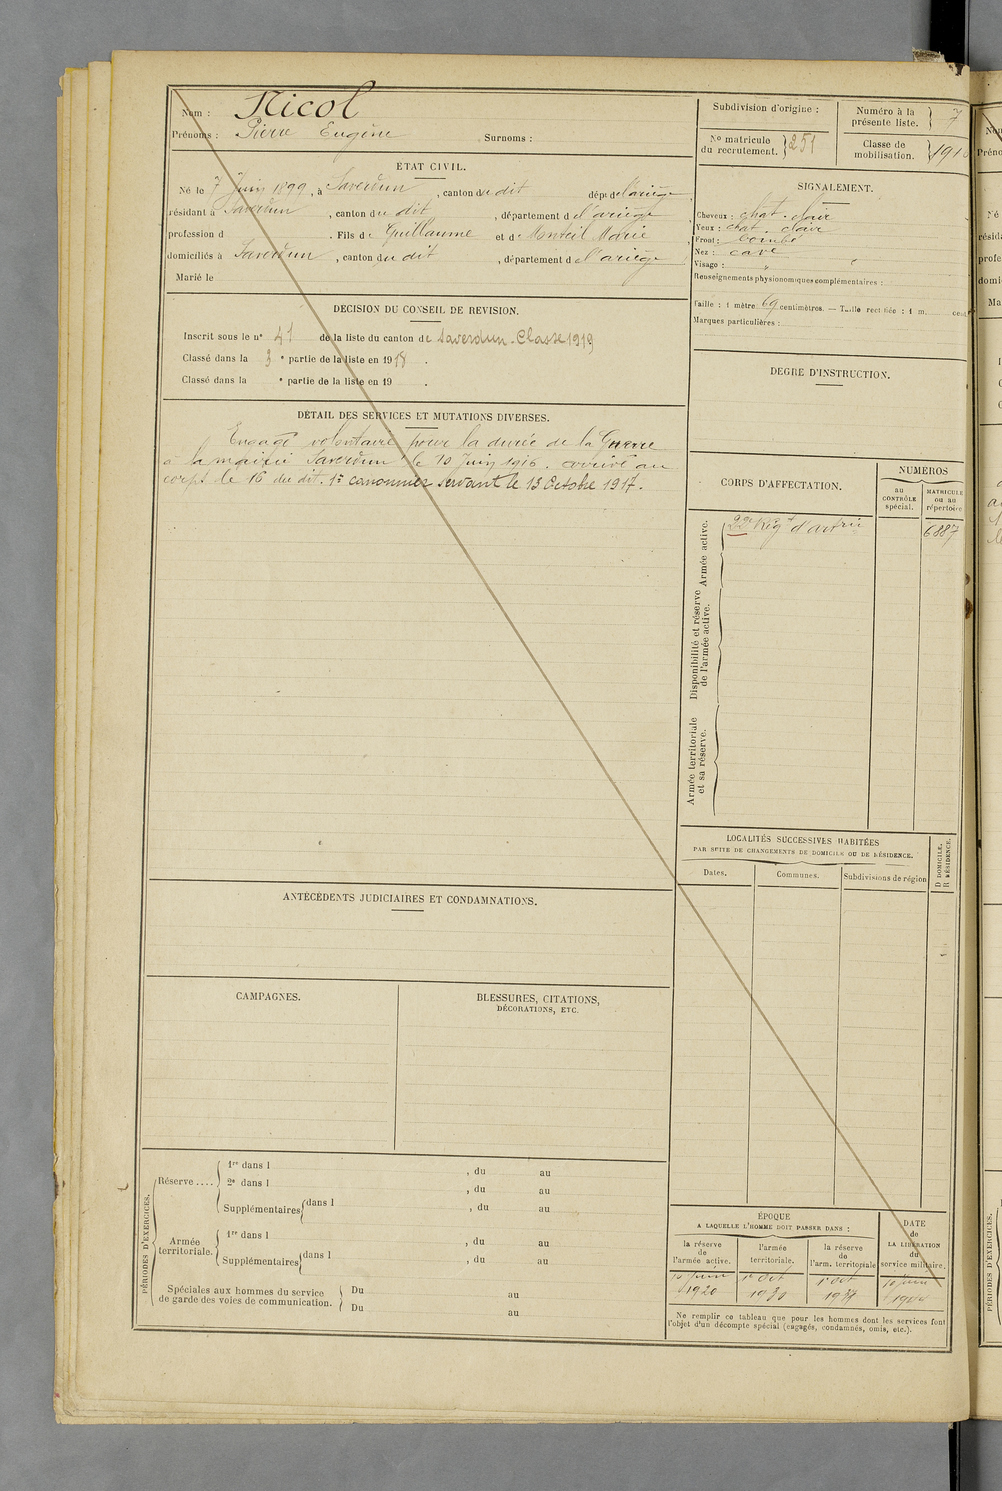 Nom : Nicol
Prénoms : Pierre Eugène , Surnoms :
ETAT CIVIL.
Né le 7 Juin 1899, à Saverdun , canton du dit dépt de l'ariège
résidant à Saverdun , canton du dit , département de l'ariège
profession d . Fils de Guillaume et de Monteil Marie
domiciliés à Saverdun , canton du dit , département de l'ariège
Marié le
DÉCISION DU CONSEIL DE REVISION.
Inscrit sous le n° 41 de la liste du canton de Saverdun. Classe 1919
Classé dans la 3 e partie de la liste en 1918 .
Classé dans la e partie de la liste en 19 .
DÉTAIL DES SERVICES ET MUTATIONS DIVERSES.
Engagé volontaire pour la durée de la Guerre
à la mairie Saverdun le 10 Juin 1916. arrivé au
corps le 16 du dit. 1r canonnier servant le 13 Octobre 1917.
ANTÉCÉDENTS JUDICIAIRES ET CONDAMNATIONS.
CAMPAGNES.
BLESSURES, CITATIONS,
DÉCORATIONS, ETC.
PÉRIODES D'EXERCICES.
Réserve ....
1re dans l , du au
2e dans l , du au
Supplémentaires dans l , du au
Armée territoriale.
1re dans l , du au
Supplémentaires dans l , du au
Spéciales aux hommes du service
de garde des voies de communication.
Du au
Du au
Subdivision d'origine :
Numéro à la présente liste. 7
No matricule du recrutement. 251
Classe de mobilisation. 191
SIGNALEMENT.
Cheveux : chat. clair
Yeux : chat. clair
Front : bombé
Nez : cave
Visage : "
Renseignements physionomiques complémentaires :
Taille : 1 mètre 69 centimètres. — Taille rectifiée : 1 m. cent
Marques particulières :
DEGRÉ D'INSTRUCTION.
CORPS D'AFFECTATION.
NUMÉROS
au CONTRÔLE spécial.
MATRICULE ou au répertoire
Armée active.
22e Régt d'artrie 6887
Disponibilité et réserve
de l'armée active.
Armée territoriale
et sa réserve.
LOCALITÉS SUCCESSIVES HABITÉES
PAR SUITE DE CHANGEMENTS DE DOMICILE OU DE RÉSIDENCE.
Dates. Communes. Subdivisions de région
D DOMICILE.
R RÉSIDENCE.
ÉPOQUE
A LAQUELLE L'HOMME DOIT PASSER DANS :
la réserve de l'armée active.
l'armée territoriale.
la réserve de l'arm. territoriale
DATE de LA LIBÉRATION du service militaire.
10 Juin 1920
1r Oct 1930
1r Oct 1937
10 Juin
Ne remplir ce tableau que pour les hommes dont les services font
l'objet d'un décompte spécial (engagés, condamnés, omis, etc.).
PÉRIODES D'EXERCICES.